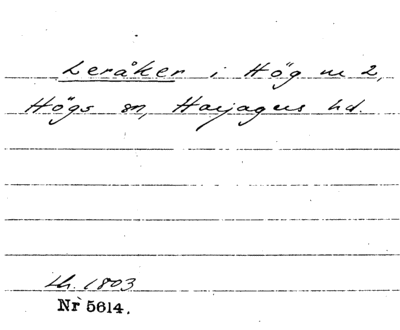 Leråker i Hög nr 2,
Högs sn, Harjagers hd.
Lh. 1803
Nr 5614.